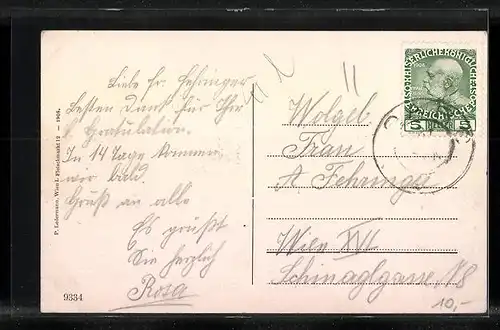 Liebe Fr. Fehringer
Besten Dank für Ihre
l. Gratulation.
In 14 Tage kommen
wir bald.
Gruß an alle
Es grüßt
Sie herzlich
Rosa
P. Ledermann, Wien I. Fleischmarkt 12 – 1908.
9334
1908
5 5
Wolgeb.
Frau
A Fehringer
Wien XVI
Schinaglgasse N 8
10,-